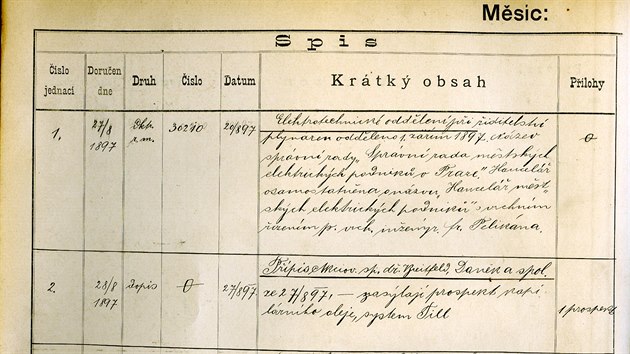 Měsíc:
Spis
Číslo jednací
Doručen dne
Druh
Číslo
Datum
Krátký obsah
Přílohy
1.
27/8 1897
r. m.
30210
20/897
Elektrotechnické oddělení při ředitelství
plynáren odděleno 1. zářím 1897. Název
správní rady „Správní rada městských
elektrických podniků v Praze". Kancelář
osamostatněna a názvu „Kancelář měst-
ských elektrických podniků" s vrchním
řízením p. vrch. inženýr. Fr. Pelikána.
0
2.
28/8 1897
dopis
0
27/897
Přípis Akciov. sp. dř. Breitfeld, Daněk a spol.
ze 27/897, — zasýlají prospekt kapi-
lárního oleje, system Till
1 prospekt